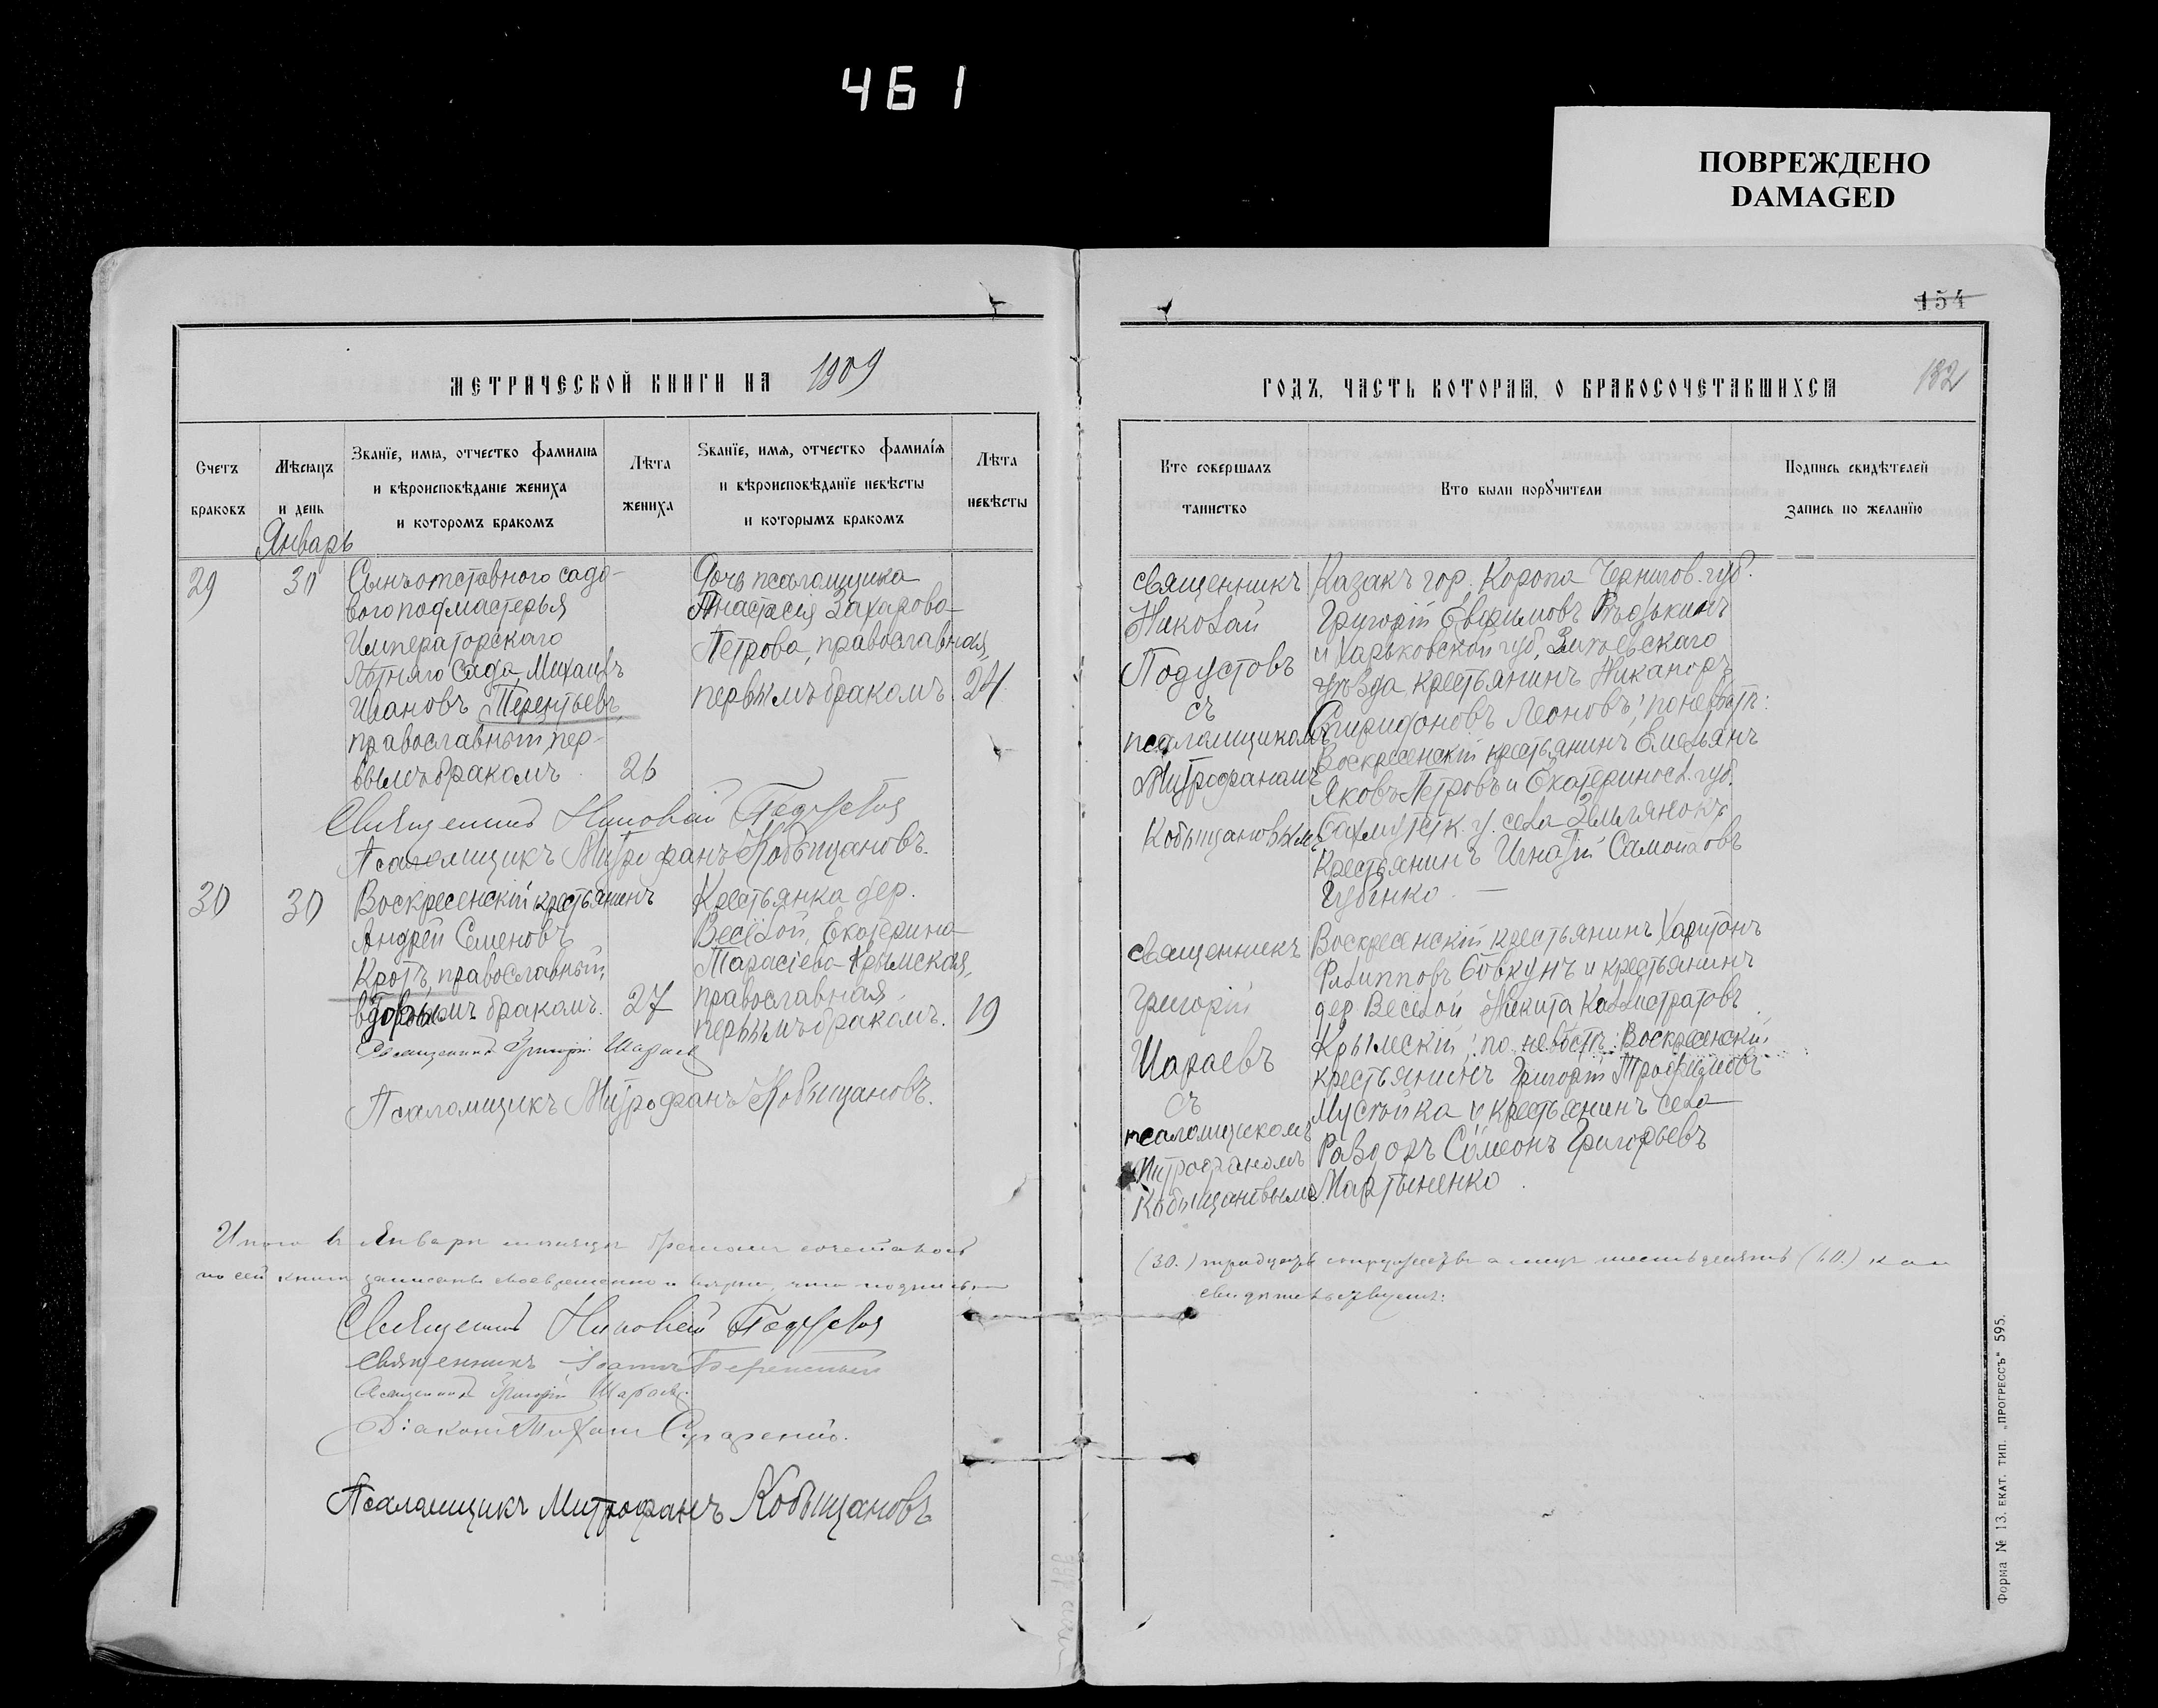 461
ПОВРЕЖДЕНО
DAMAGED
154
МЕТРИЧЕСКОЙ КНИГИ НА 1909
Счетъ браковъ
Мѣсяцъ и день
Званїе, имя, отчество фамилия
и вѣроисповѣданіе жениха
и которомъ бракомъ
Лѣта жениха
Званїе, имя, отчество фамилїя
и вѣроисповѣданїе невѣсты
и которымъ бракомъ
Лѣта невѣсты
Январь
29
30
Сынъ отставного садо-
вого подмастерья
Императорскаго
Лѣтняго Сада Михаилъ
Ивановъ Терентьевъ,
православный, пер-
вымъ бракомъ
26
Дочь псаломщика
Анастасія Захарова
Петрова, православная,
первымъ бракомъ
21
Священникъ Николай Подустовъ
Псаломщикъ Митрофанъ Кобыщановъ.
30
30
Воскресенскій крестьянинъ
Андрей Семеновъ
Кротъ, православный,
вторымъ бракомъ.
27
Крестьянка дер.
Весёлой, Екатерина
Тарасіева Крымская,
православная,
первымъ бракомъ.
19
Священникъ Григорій Шараевъ
Псаломщикъ Митрофанъ Кобыщановъ.
Итого въ Январѣ мѣсяцѣ бракомъ сочеталось
по сей книгѣ записаны своевременно и вѣрно, что подписью
Священникъ Николай Подустовъ
Священникъ Іоаннъ
Священникъ Григорій Шараевъ
Діаконъ
Псаломщикъ Митрофанъ Кобыщановъ
ГОДЪ, ЧАСТЬ ВТОРАЯ, О БРАКОСОЧЕТАВШИХСЯ
182
Кто совершалъ таинство
Кто были порꙋчители
Подпись свидѣтелей запись по желанїю
священникъ
Николай
Подустовъ
съ
псаломщикомъ
Митрофаномъ
Кобыщановымъ
Казакъ гор. Коропа Чернигов. губ.
Григорій Евфимовъ Рѣдькинъ
и Харьковской губ, Зміевскаго
уѣзда крестьянинъ Никаноръ
Спиридоновъ Леоновъ; по невѣстѣ:
Воскресенскій крестьянинъ Емельянъ
Яковъ Петровъ и Екатеринос. губ.
Бахмутск. у. села Землянокъ
крестьянинъ Игнатій Самойловъ
Губенко —
священникъ
Григорій
Шараевъ
съ
псаломщикомъ
Митрофаномъ
Кобыщановымъ
Воскресенскій крестьянинъ Харитонъ
Филипповъ Бовкунъ и крестьянинъ
дер Весёлой Никита Каллистратовъ
Крымскій; по невѣстѣ: Воскресенскій
крестьянинъ Григорій Трофимовъ
Мустойка и крестьянинъ села
Раздоръ Сѵмеонъ Григорьевъ
Мартыненко.
(30.) тридцать супружествъ а лицъ шестьдесятъ (60.) как
свидѣтельствуемъ:
Форма № 13. ЕКАТ. ТИП. „ПРОГРЕССЪ“ 595.